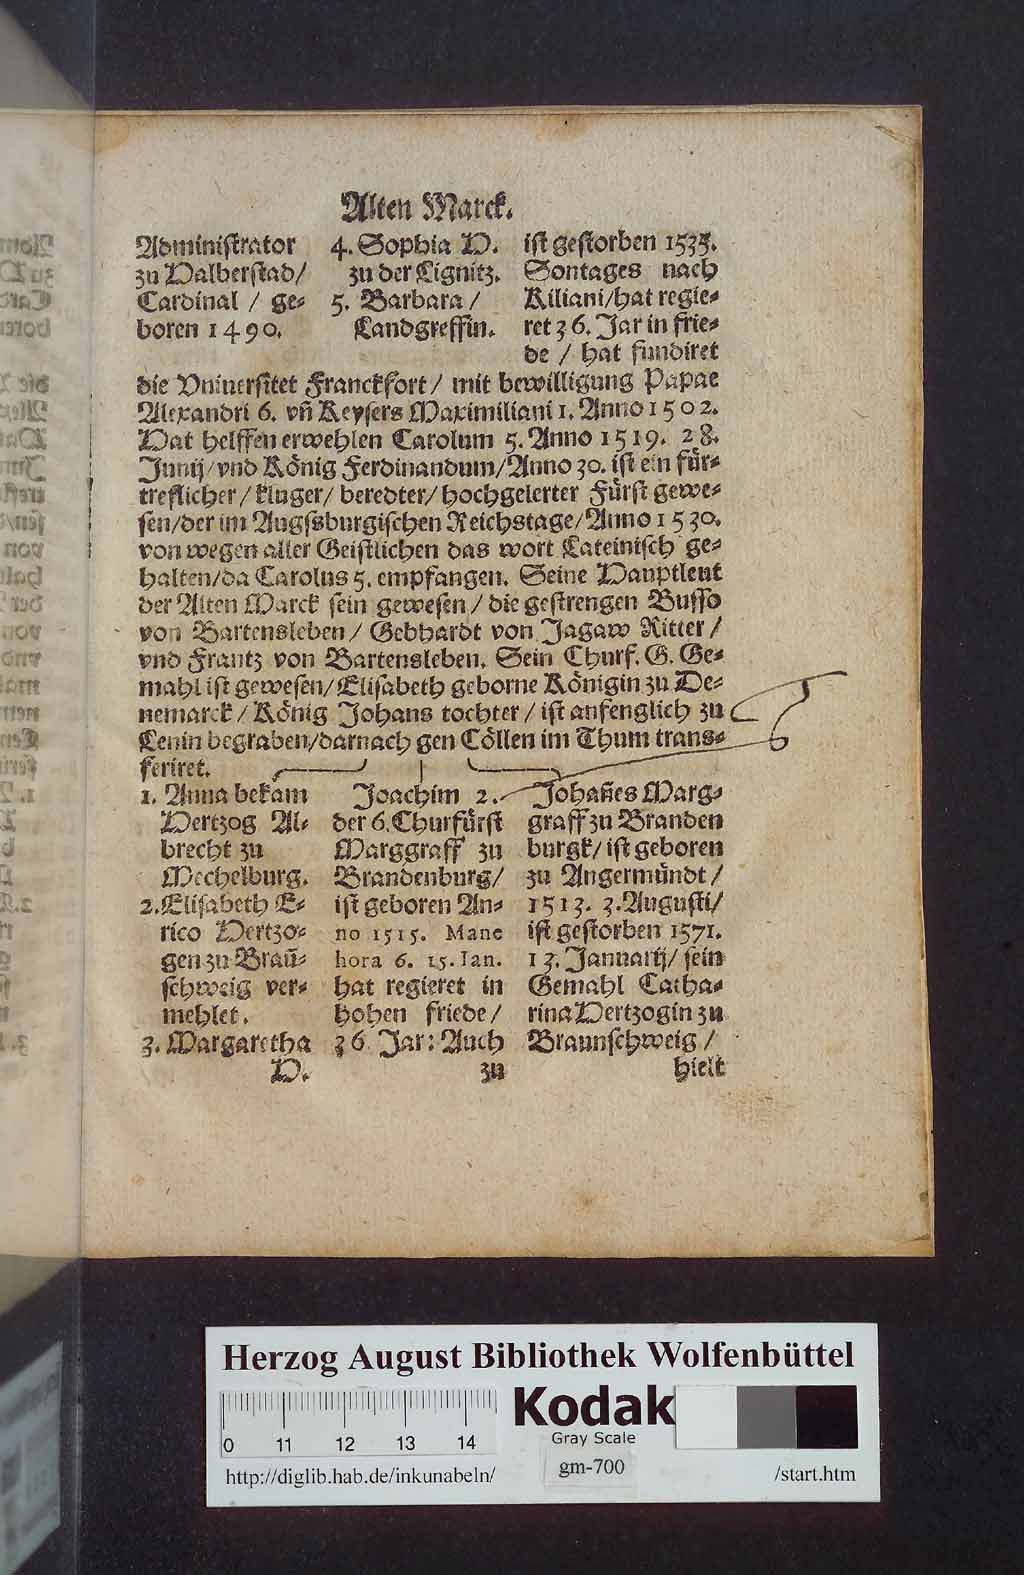 Alten Marck.
Administrator
zu Halberstad/
Cardinal / ge-
boren 1490.
4. Sophia H.
zu der Lignitz.
5. Barbara /
Landgreffin.
ist gestorben 1535.
Sontages nach
Kiliani/hat regie-
ret 36. Jar in frie-
de / hat fundiret
die Vniuersitet Franckfort/ mit bewilligung Papae
Alexandri 6. vñ Keysers Maximiliani 1. Anno 1502.
Hat helffen erwehlen Carolum 5. Anno 1519. 28.
Junij/vnd König Ferdinandum/Anno 30. ist ein für-
treflicher/kluger/ beredter/hochgelerter Fürst gewe-
sen/der im Augssburgischen Reichstage/Anno 1530.
von wegen aller Geistlichen das wort Lateinisch ge-
halten/da Carolus 5. empfangen. Seine Hauptleut
der Alten Marck sein gewesen / die gestrengen Busso
von Bartensleben/ Gebhardt von Jagaw Ritter/
vnd Frantz von Bartensleben. Sein Churf. G. Ge-
mahl ist gewesen/Elisabeth geborne Königin zu De-
nemarck/ König Johans tochter/ ist anfenglich zu
Lenin begraben/darnach gen Cöllen im Thum trans-
feriret.
1. Anna bekam
Hertzog Al-
brecht zu
Mechelburg.
2. Elisabeth E-
rico Hertzo-
gen zu Braũ-
schweig ver-
mehlet.
3. Margaretha
H.
Joachim 2.
der 6. Churfürst
Marggraff zu
Brandenburg/
ist geboren An-
no 1515. Mane
hora 6. 15. Ian.
hat regieret in
hohen friede/
36 Jar: Auch
zu
Johañes Marg-
graff zu Branden
burgk/ ist geboren
zu Angermündt/
1513. 3. Augusti/
ist gestorben 1571.
13. Januarij/ sein
Gemahl Catha-
rina Hertzogin zu
Braunschweig/
hielt
Herzog August Bibliothek Wolfenbüttel
0 11 12 13 14
Kodak
Gray Scale
http://diglib.hab.de/inkunabeln/
gm-700
/start.htm